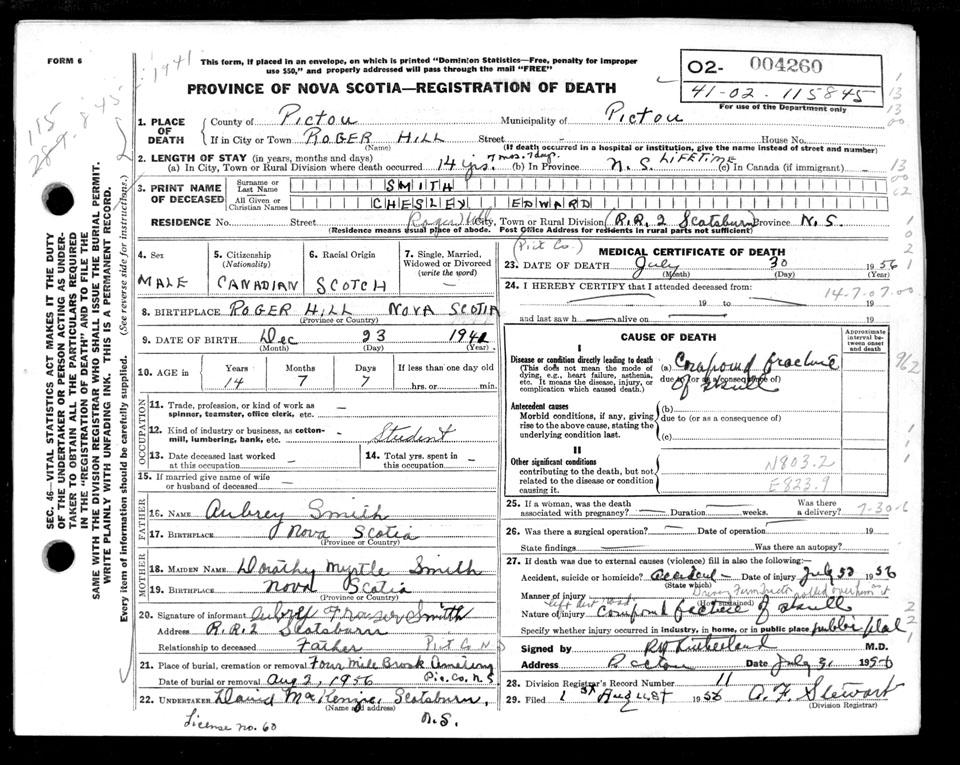 FORM 6
1941
This form, if placed in an envelope, on which is printed "Dominion Statistics—Free, penalty for improper
use $50," and properly addressed will pass through the mail "FREE"
PROVINCE OF NOVA SCOTIA—REGISTRATION OF DEATH
02- 004260
41-02. 115845
For use of the Department only
115
SEC. 46—VITAL STATISTICS ACT MAKES IT THE DUTY
OF THE UNDERTAKER OR PERSON ACTING AS UNDER-
TAKER TO OBTAIN ALL THE PARTICULARS REQUIRED
IN THE "REGISTRATION OF DEATH" AND TO FILE THE
SAME WITH THE DIVISION REGISTRAR WHO SHALL ISSUE THE BURIAL PERMIT.
WRITE PLAINLY WITH UNFADING INK. THIS IS A PERMANENT RECORD.
Every item of information should be carefully supplied. (See reverse side for instructions.)
1. PLACE OF DEATH
County of Pictou Municipality of Pictou
If in City or Town ROGER HILL Street - House No.
(Name) (If death occurred in a hospital or institution, give the name instead of street and number)
2. LENGTH OF STAY (in years, months and days)
(a) In City, Town or Rural Division where death occurred 14 yrs. 7 mos. 7 days. (b) In Province N.S. LIFETIME (c) In Canada (if immigrant) -
3. PRINT NAME OF DECEASED
Surname or Last Name SMITH
All Given or Christian Names CHESLEY EDWARD
RESIDENCE No. Street Roger Hill City, Town or Rural Division (R.R.2 Scotsburn) Province N.S.
(Residence means usual place of abode. Post Office Address for residents in rural parts not sufficient)
(Pict Co.)
4. Sex MALE
5. Citizenship (Nationality) CANADIAN
6. Racial Origin SCOTCH
7. Single, Married, Widowed or Divorced (write the word) —
8. BIRTHPLACE ROGER HILL NOVA SCOTIA
(Province or Country)
9. DATE OF BIRTH Dec 23 1941
(Month) (Day) (Year)
10. AGE in Years 14 Months 7 Days 7 If less than one day old hrs. or min.
OCCUPATION
11. Trade, profession, or kind of work as spinner, teamster, office clerk, etc. -
12. Kind of industry or business, as cotton-mill, lumbering, bank, etc. - Student
13. Date deceased last worked at this occupation —
14. Total yrs. spent in this occupation —
15. If married give name of wife or husband of deceased —
FATHER
16. NAME Aubrey Smith
17. BIRTHPLACE Nova Scotia
(Province or Country)
MOTHER
18. MAIDEN NAME Dorothy Myrtle Smith
19. BIRTHPLACE Nova Scotia
(Province or Country)
20. Signature of informant Aubrey Fraser Smith
Address R.R.2 Scotsburn
Relationship to deceased Father Pict Co N
21. Place of burial, cremation or removal Four Mile Brook Cemetery
Date of burial or removal Aug 2, 1956 Pic. Co. N.S.
22. UNDERTAKER David McKenzie, Scotsburn,
(Name and address) N.S.
License no. 60
MEDICAL CERTIFICATE OF DEATH
23. DATE OF DEATH July 30 1956
(Month) (Day) (Year)
24. I HEREBY CERTIFY that I attended deceased from:
19 to 19
14-7-07.00
and last saw h alive on 19
CAUSE OF DEATH
Approximate interval between onset and death
I
Disease or condition directly leading to death
(This does not mean the mode of dying, e.g., heart failure, asthenia, etc. It means the disease, injury, or complication which caused death.)
(a) Compound fracture
due to (or as a consequence of)
of skull
Antecedent causes
Morbid conditions, if any, giving rise to the above cause, stating the underlying condition last.
(b)
due to (or as a consequence of)
(c)
II
Other significant conditions
contributing to the death, but not related to the disease or condition causing it.
N803.2
E823.9
9/2
25. If a woman, was the death associated with pregnancy? Duration weeks. Was there a delivery?
7-30-6
26. Was there a surgical operation? Date of operation 19
State findings Was there an autopsy?
27. If death was due to external causes (violence) fill in also the following:
Accident, suicide or homicide? Accident — Date of injury July 30 1956
(State which)
Manner of injury Driving Farm Tractor rolled over him
left dirt road (How sustained)
Nature of injury Compound fracture of skull
Specify whether injury occurred in industry, in home, or in public place public place
Signed by M.D.
Address Pictou Date July 31 1956
28. Division Registrar's Record Number 11
29. Filed 1st August 1956 A. F. Stewart
(Division Registrar)